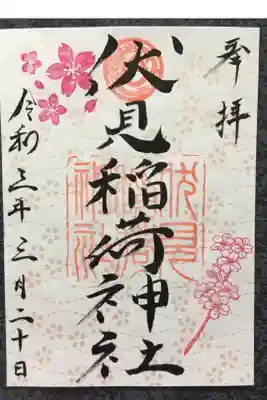 奉拝
伏見稲荷神社
伏見
神社
令和三年三月二十日